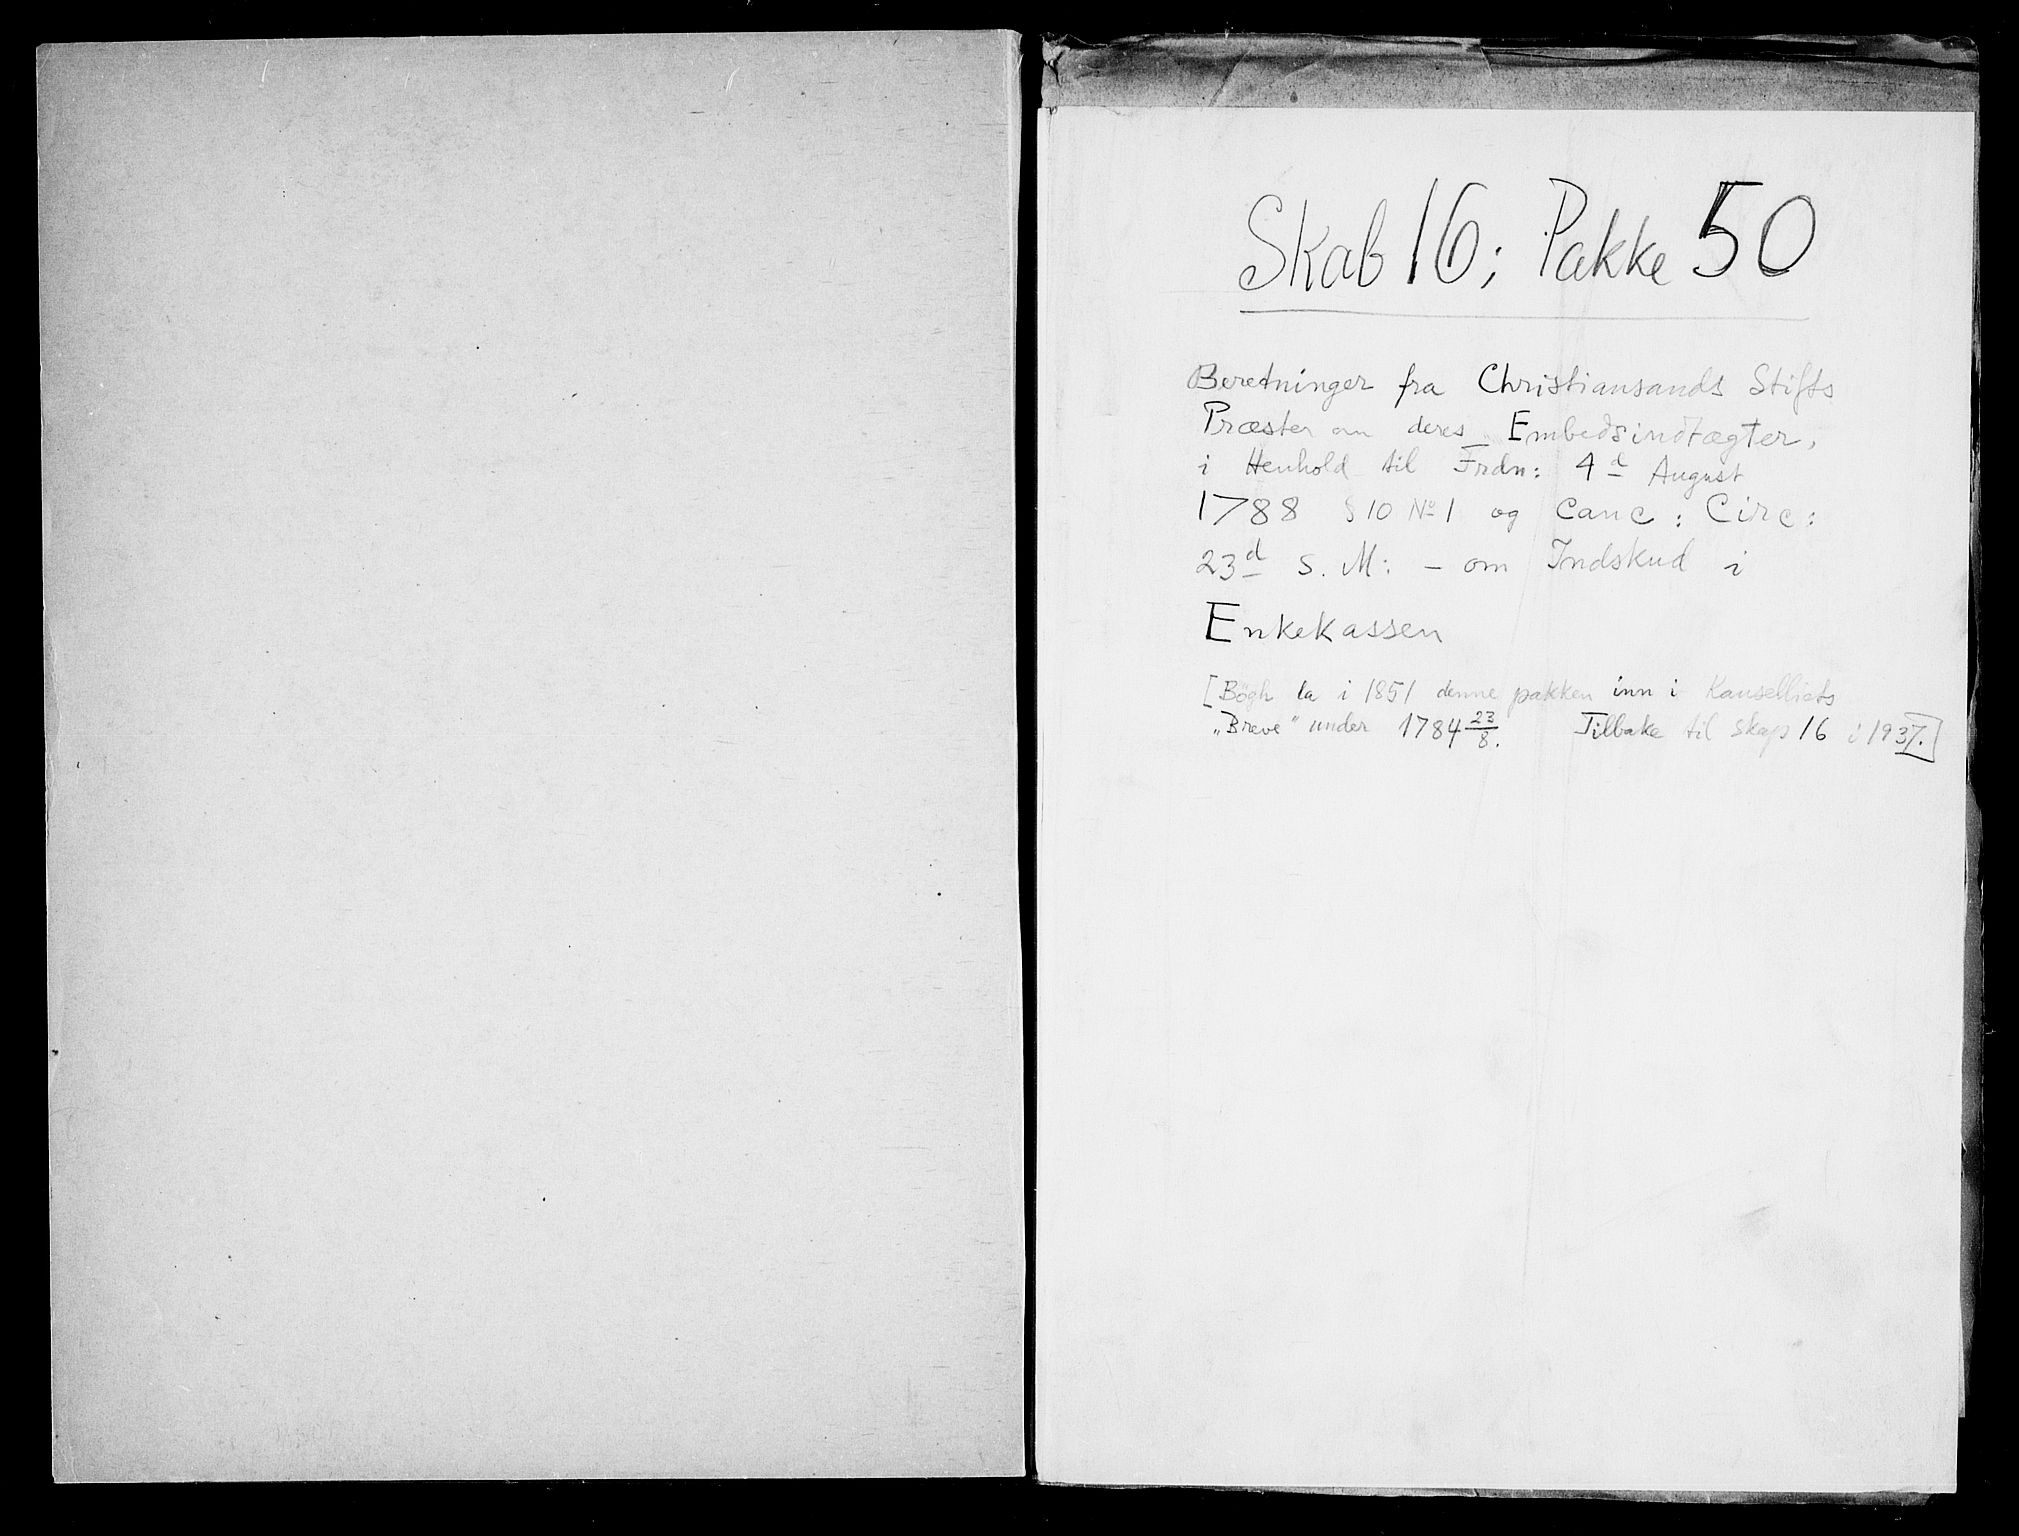 Skab 16; Pakke 50
Beretninger fra Christiansands Stifts
Præster om deres Embedsindtægter,
i Henhold til Frdn: 4d August
1788 § 10 No 1 og Canc: Circ:
23d s. M: – om Indskud i
Enkekassen
[Bögh la i 1851 denne pakken inn i Kanselliets
„Breve" under 1784 23/8. Tilbake til skap 16 i 1937.]